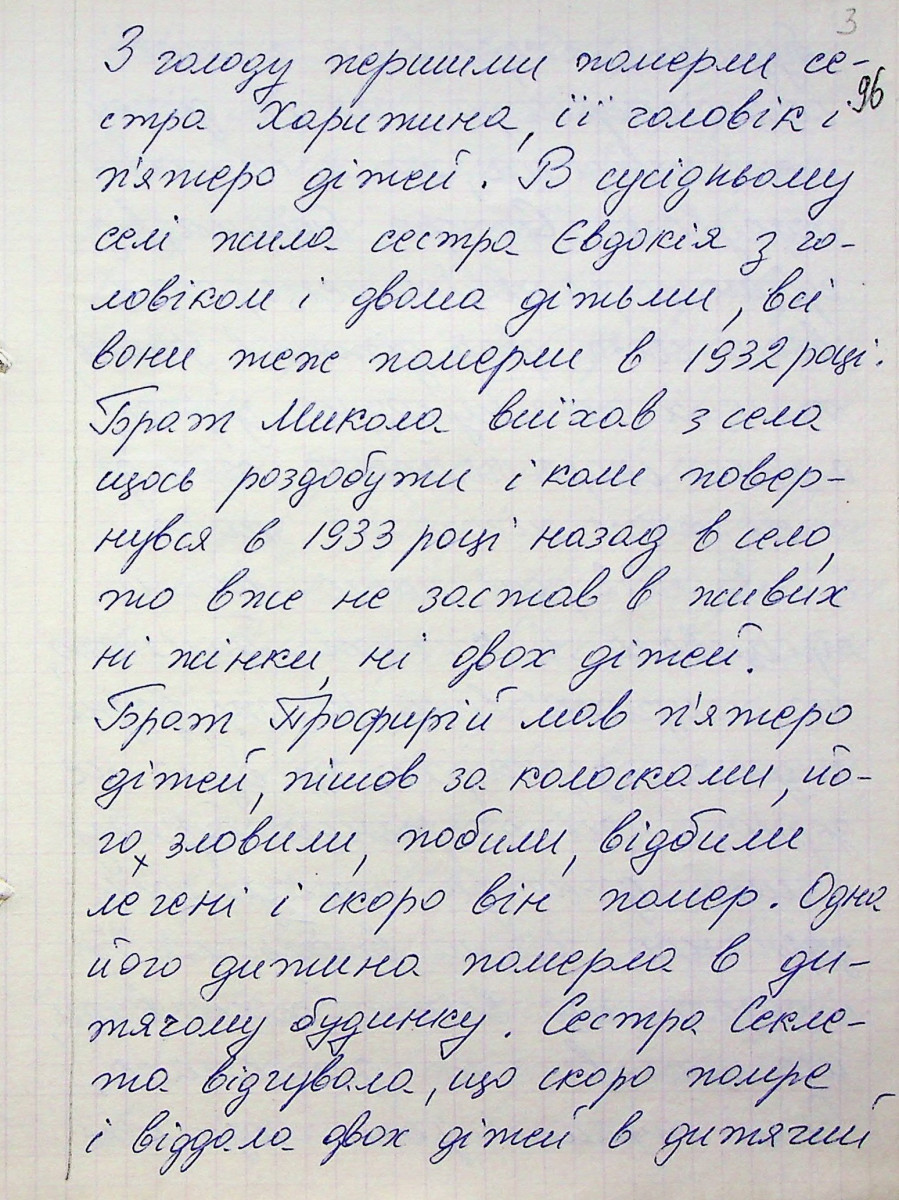 3
З голоду першими померли се-
96
стра Харитина, її чоловік і
п'ятеро дітей. В сусідньому
селі жила сестра Євдокія з чо-
ловіком і двома дітьми, всі
вони теж померли в 1932 році.
Брат Микола виїхав з села
щось роздобути і коли повер-
нувся в 1933 році назад в село,
то вже не застав в живих
ні жінки, ні двох дітей.
Брат Профирій мав п'ятеро
дітей, пішов за колосками, йо-
го зловили, побили, відбили
легені і скоро він помер. Одна
його дитина померла в ди-
тячому будинку. Сестра Секле-
та відчувала, що скоро помре
і віддала двох дітей в дитячий